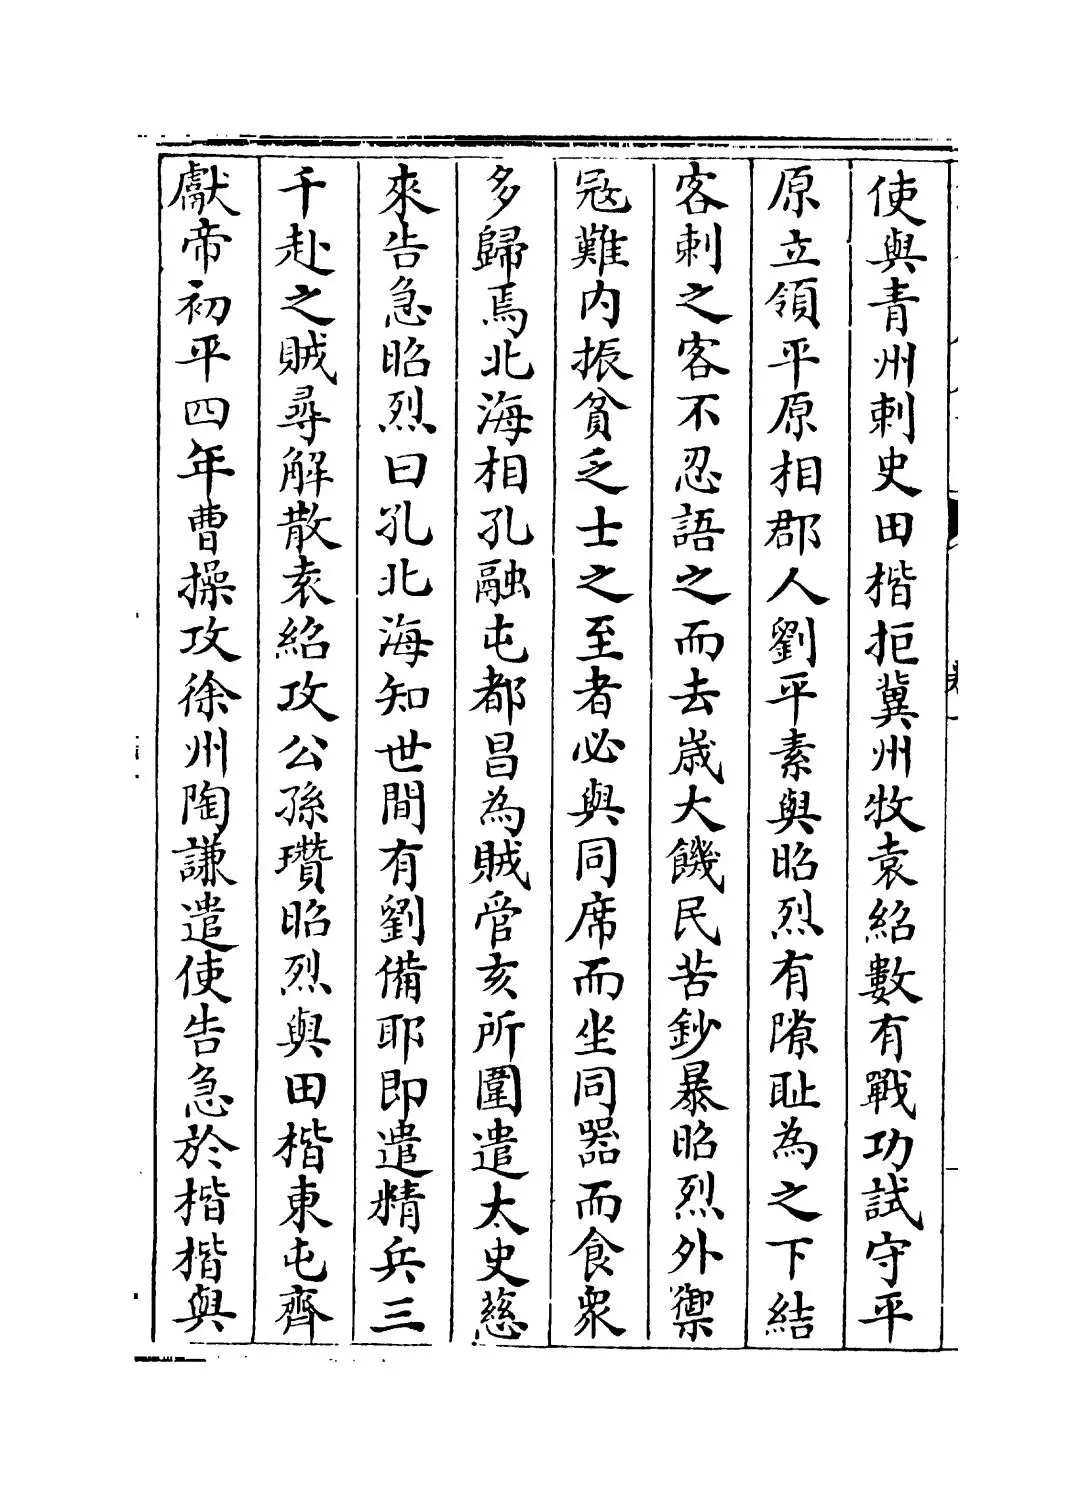 使與青州刺史田楷拒冀州牧袁紹數有戰功試守平
原立領平原相郡人劉平素與昭烈有隙耻為之下結
客刺之客不忍語之而去歳大饑民苦鈔暴昭烈外禦
冦難内振貧乏士之至者必與同席而坐同器而食衆
多歸焉北海相孔融屯都昌為賊管亥所圍遣太史慈
來告急昭烈曰孔北海知世間有劉備耶即遣精兵三
千赴之賊尋解散袁紹攻公孫瓚昭烈與田楷東屯齊
獻帝初平四年曹操攻徐州陶謙遣使告急於楷楷與